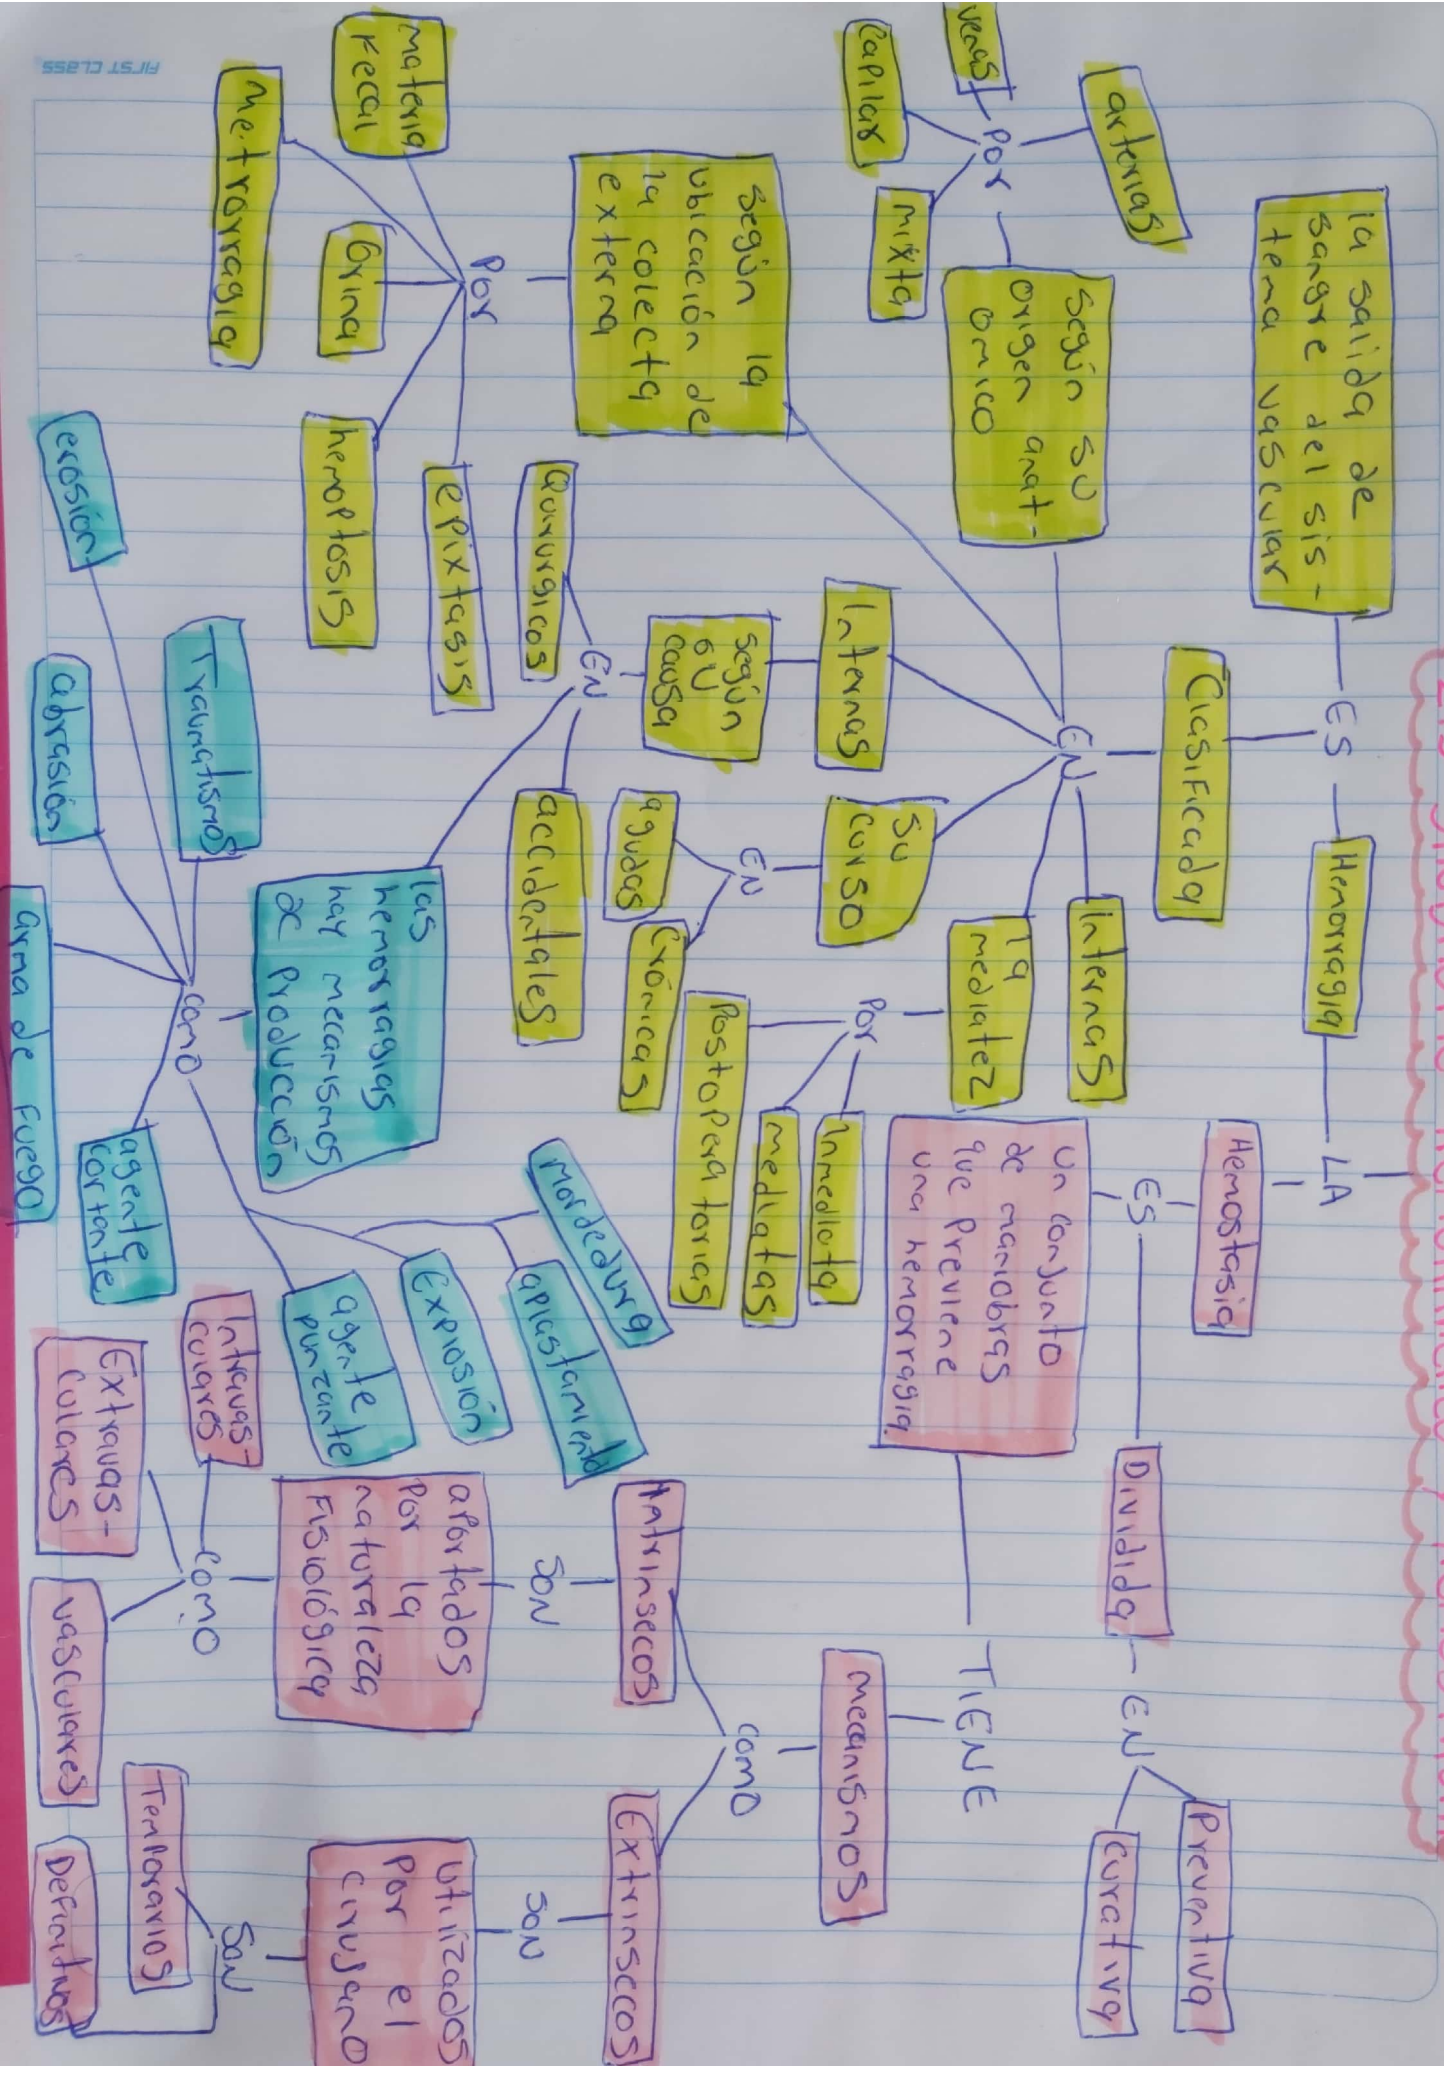 ES
Hemorragia
LA
la salida de
sangre del sis-
tema vascular
Clasificada
EN
Según su
origen anat-
omico
Por
arterias
venas
Capilar
mixta
Según la
ubicación de
la colecta
externa
Por
materia
Fecal
Metrorragia
Orina
hemoptosis
epixtasis
Internas
Según
su
causa
EN
Quirurgicos
accidentales
Su
curso
EN
agudas
Crónicas
la
mediatez
Por
Inmediata
mediatas
Postoperatorias
Internas
las
hemorragias
hay mecanismos
de producción
como
erosión
Traumatismos
abrasión
arma de fuego
agente
cortante
agente
punzante
Explosión
aplastamiento
Mordedura
Hemostasia
ES
un conjunto
de maniobras
que Previene
una hemorragia.
Dividida
EN
Preventiva
Curativa
TIENE
mecanismos
como
Intrinsecos
SON
aportados
Por la
naturaleza
Fisiológica
Como
Intravas-
culares
Extravas-
culares
vasculares
Extrinsecos
SON
Utilizados
Por el
cirujano
SON
Temporarios
Definitivos
FIRST CLASS